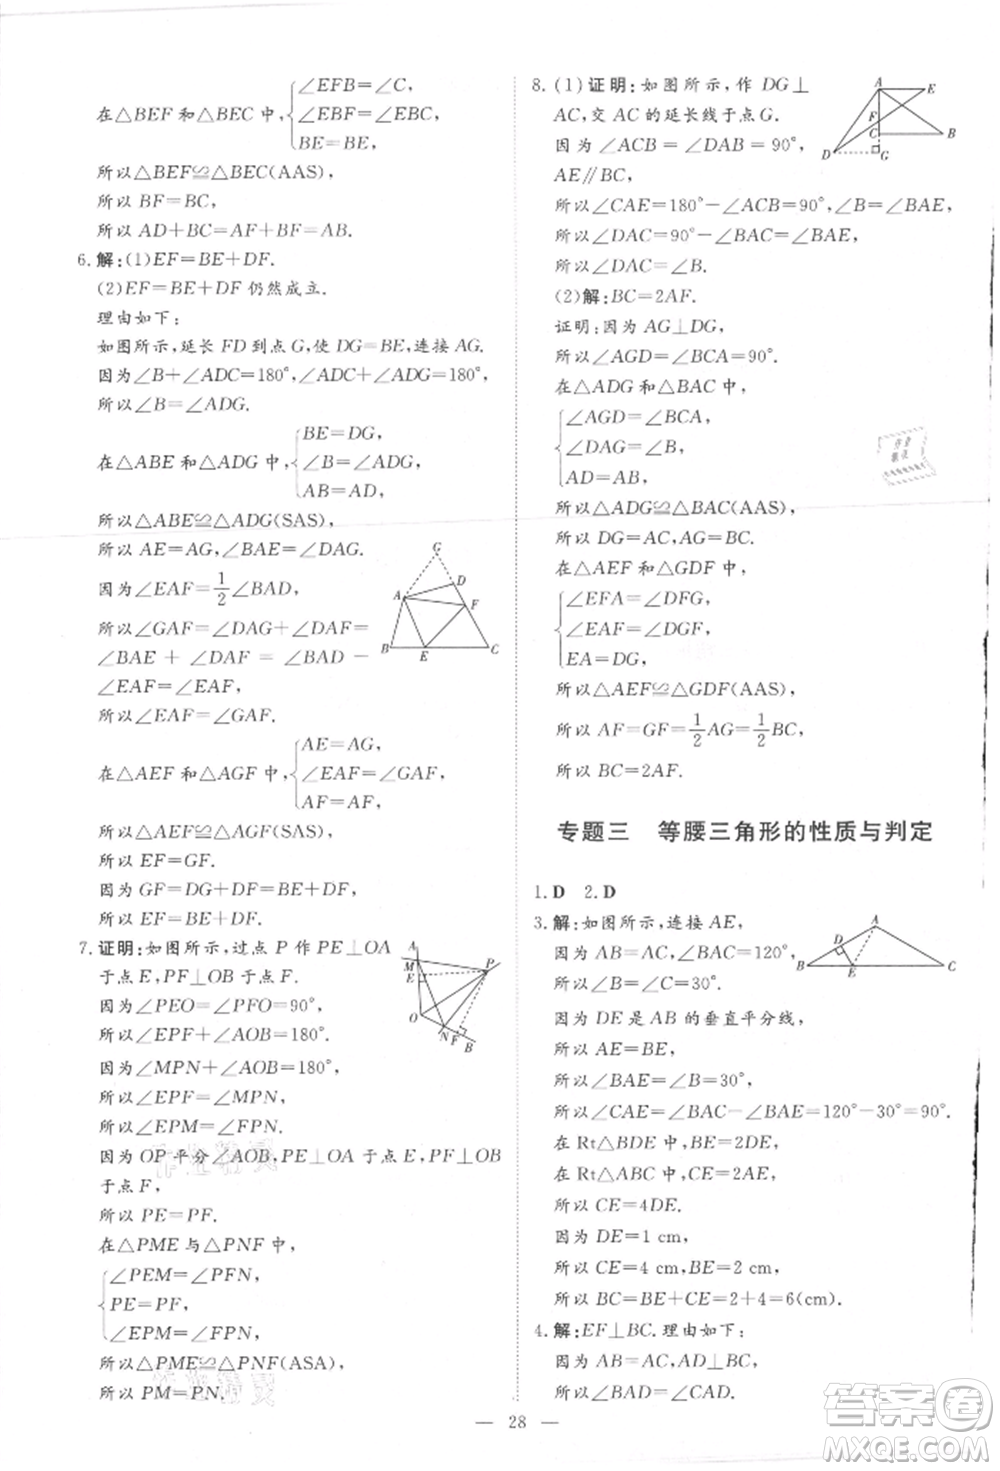 ∠EFB=∠C,
在△BEF 和△BEC 中, ∠EBF=∠EBC,
BE=BE,
所以△BEF≌△BEC(AAS),
所以 BF=BC,
所以 AD+BC=AF+BF=AB.
6. 解:(1)EF=BE+DF.
(2)EF=BE+DF 仍然成立.
理由如下:
如图所示,延长 FD 到点 G,使 DG=BE,连接 AG.
因为∠B+∠ADC=180°,∠ADC+∠ADG=180°,
所以∠B=∠ADG.
BE=DG,
在△ABE 和△ADG 中, ∠B=∠ADG,
AB=AD,
所以△ABE≌△ADG(SAS),
所以 AE=AG,∠BAE=∠DAG.
因为∠EAF=1/2∠BAD,
所以∠GAF=∠DAG+∠DAF=
∠BAE + ∠DAF = ∠BAD −
∠EAF=∠EAF,
所以∠EAF=∠GAF.
AE=AG,
在△AEF 和△AGF 中, ∠EAF=∠GAF,
AF=AF,
所以△AEF≌△AGF(SAS),
所以 EF=GF.
因为 GF=DG+DF=BE+DF,
所以 EF=BE+DF.
G
D
A
F
B
E
C
7. 证明:如图所示,过点 P 作 PE⊥OA
于点 E,PF⊥OB 于点 F.
因为∠PEO=∠PFO=90°,
所以∠EPF+∠AOB=180°.
因为∠MPN+∠AOB=180°,
所以∠EPF=∠MPN,
所以∠EPM=∠FPN.
因为 OP 平分∠AOB,PE⊥OA 于点 E,PF⊥OB
于点 F,
所以 PE=PF.
在△PME 与△PNF 中,
∠PEM=∠PFN,
PE=PF,
∠EPM=∠FPN,
所以△PME≌△PNF(ASA),
所以 PM=PN.
A
M
P
E
O
N
F
B
8. (1)证明:如图所示,作 DG⊥
AC,交 AC 的延长线于点 G.
因为∠ACB=∠DAB=90°,
AE∥BC,
所以∠CAE=180°−∠ACB=90°,∠B=∠BAE,
所以∠DAC=90°−∠BAC=∠BAE,
所以∠DAC=∠B.
(2)解:BC=2AF.
证明:因为 AG⊥DG,
所以∠AGD=∠BCA=90°.
在△ADG 和△BAC 中,
∠AGD=∠BCA,
∠DAG=∠B,
AD=AB,
所以△ADG≌△BAC(AAS),
所以 DG=AC,AG=BC.
在△AEF 和△GDF 中,
∠EFA=∠DFG,
∠EAF=∠DGF,
EA=DG,
所以△AEF≌△GDF(AAS),
所以 AF=GF=1/2AG=1/2BC,
所以 BC=2AF.
A
E
F
C
B
D
G
专题三 等腰三角形的性质与判定
1. D 2. D
3. 解:如图所示,连接 AE,
因为 AB=AC,∠BAC=120°,
所以∠B=∠C=30°.
因为 DE 是 AB 的垂直平分线,
所以 AE=BE,
所以∠BAE=∠B=30°,
所以∠CAE=∠BAC−∠BAE=120°−30°=90°.
在 Rt△BDE 中,BE=2DE,
在 Rt△ACE 中,CE=2AE,
所以 CE=4DE.
因为 DE=1 cm,
所以 CE=4 cm,BE=2 cm,
所以 BC=BE+CE=2+4=6(cm).
A
D
B
E
C
4. 解:EF⊥BC.理由如下:
因为 AB=AC,AD⊥BC,
所以∠BAD=∠CAD.
— 28 —
答案圈
MXQE.COM